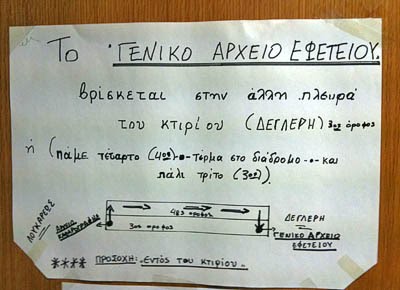 Το "ΓΕΝΙΚΟ ΑΡΧΕΙΟ ΕΦΕΤΕΙΟΥ"
βρίσκεται στην άλλη πλευρά
του κτιρίου (ΔΕΓΛΕΡΗ) 3ος όροφος
ή (πάμε τέταρτο (4ος)-ο-τέρμα στο διάδρομο-ο-και
πάλι τρίτο (3ος)).
ΛΟΥΚΑΡΕΩΣ
4ος όροφος
3ος όροφος
ΔΕΓΛΕΡΗ
ΓΕΝΙΚΟ ΑΡΧΕΙΟ
ΕΦΕΤΕΙΟΥ
**** ΠΡΟΣΟΧΗ: "Εντός του κτιρίου"